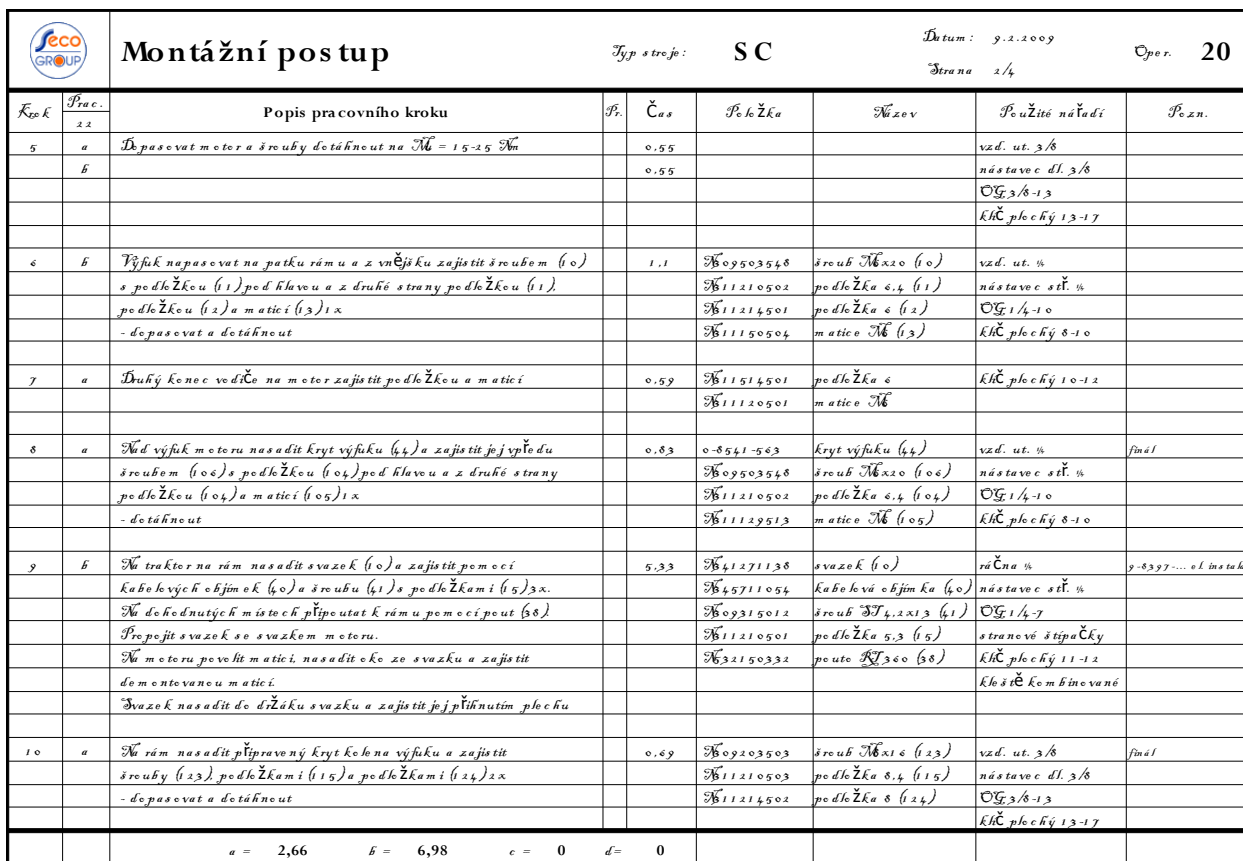 Seco
GROUP
Montážní postup
Typ stroje:
SC
Datum: 9.2.2009
Strana 2/4
Oper. 20
Krok Prac. Popis pracovního kroku Pr. Čas Položka Název Použité nářadí Pozn.
22
5 a Dopasovat motor a šrouby dotáhnout na Mu = 15-25 Nm 0,55 vzd. ut. 3/8
b 0,55 nástavec dl. 3/8
OG 3/8-13
klíč plochý 13-17
6 b Výfuk napasovat na patku rámu a z vnějšku zajistit šroubem (10) 1,1 N309503548 šroub M6x20 (10) vzd. ut. ¼
s podložkou (11) pod hlavou a z druhé strany podložkou (11), N311210502 podložka 6,4 (11) nástavec stř. ¼
podložkou (12) a maticí (13) 1x N311214501 podložka 6 (12) OG 1/4-10
- dopasovat a dotáhnout N311150504 matice M6 (13) klíč plochý 8-10
7 a Druhý konec vodiče na motor zajistit podložkou a maticí 0,59 N311514501 podložka 6 klíč plochý 10-12
N311120501 matice M6
8 a Nad výfuk motoru nasadit kryt výfuku (44) a zajistit jej vpředu 0,83 0-8541-563 kryt výfuku (44) vzd. ut. ¼ finál
šroubem (106) s podložkou (104) pod hlavou a z druhé strany N309503548 šroub M6x20 (106) nástavec stř. ¼
podložkou (104) a maticí (105) 1x N311210502 podložka 6,4 (104) OG 1/4-10
- dotáhnout N311129513 matice M6 (105) klíč plochý 8-10
9 b Na traktor na rám nasadit svazek (10) a zajistit pomocí 5,33 N341271138 svazek (10) ráčna ¼ 9-8397-... el. instala
kabelových objímek (40) a šroubu (41) s podložkami (15) 3x. N345711054 kabelová objímka (40) nástavec stř. ¼
Na dohodnutých místech připoutat k rámu pomocí pout (38). N309315012 šroub ST4,2x13 (41) OG 1/4-7
Propojit svazek se svazkem motoru. N311210501 podložka 5,3 (15) stranové štípačky
Na motoru povolit matici, nasadit oko ze svazku a zajistit N532150332 pouto RT360 (38) klíč plochý 11-12
demontovanou maticí. kleště kombinované
Svazek nasadit do držáku svazku a zajistit jej přihnutím plechu
10 a Na rám nasadit připravený kryt kolena výfuku a zajistit 0,69 N309203503 šroub M8x16 (123) vzd. ut. 3/8 finál
šrouby (123), podložkami (115) a podložkami (124) 2x N311210503 podložka 8,4 (115) nástavec dl. 3/8
- dopasovat a dotáhnout N311214502 podložka 8 (124) OG 3/8-13
klíč plochý 13-17
a = 2,66 b = 6,98 c = 0 d= 0